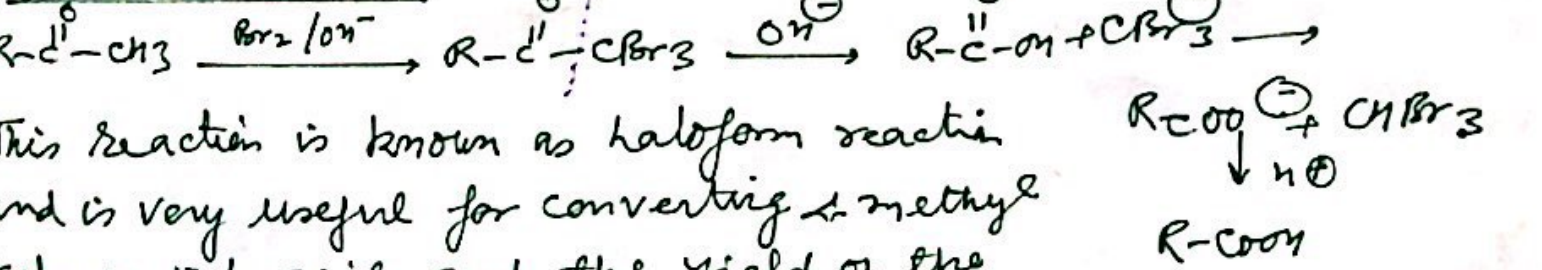 R-C(=O)-CH3 —Br2/OH⁻→ R-C(=O)-CBr3 —OH⁻→ R-C(=O)-OH + CBr3⁻ →
RCOO⁻ + CHBr3
This reaction is known as haloform reaction
↓ H⊕
and is very useful for converting α-methyl
R-COOH
the yield of the